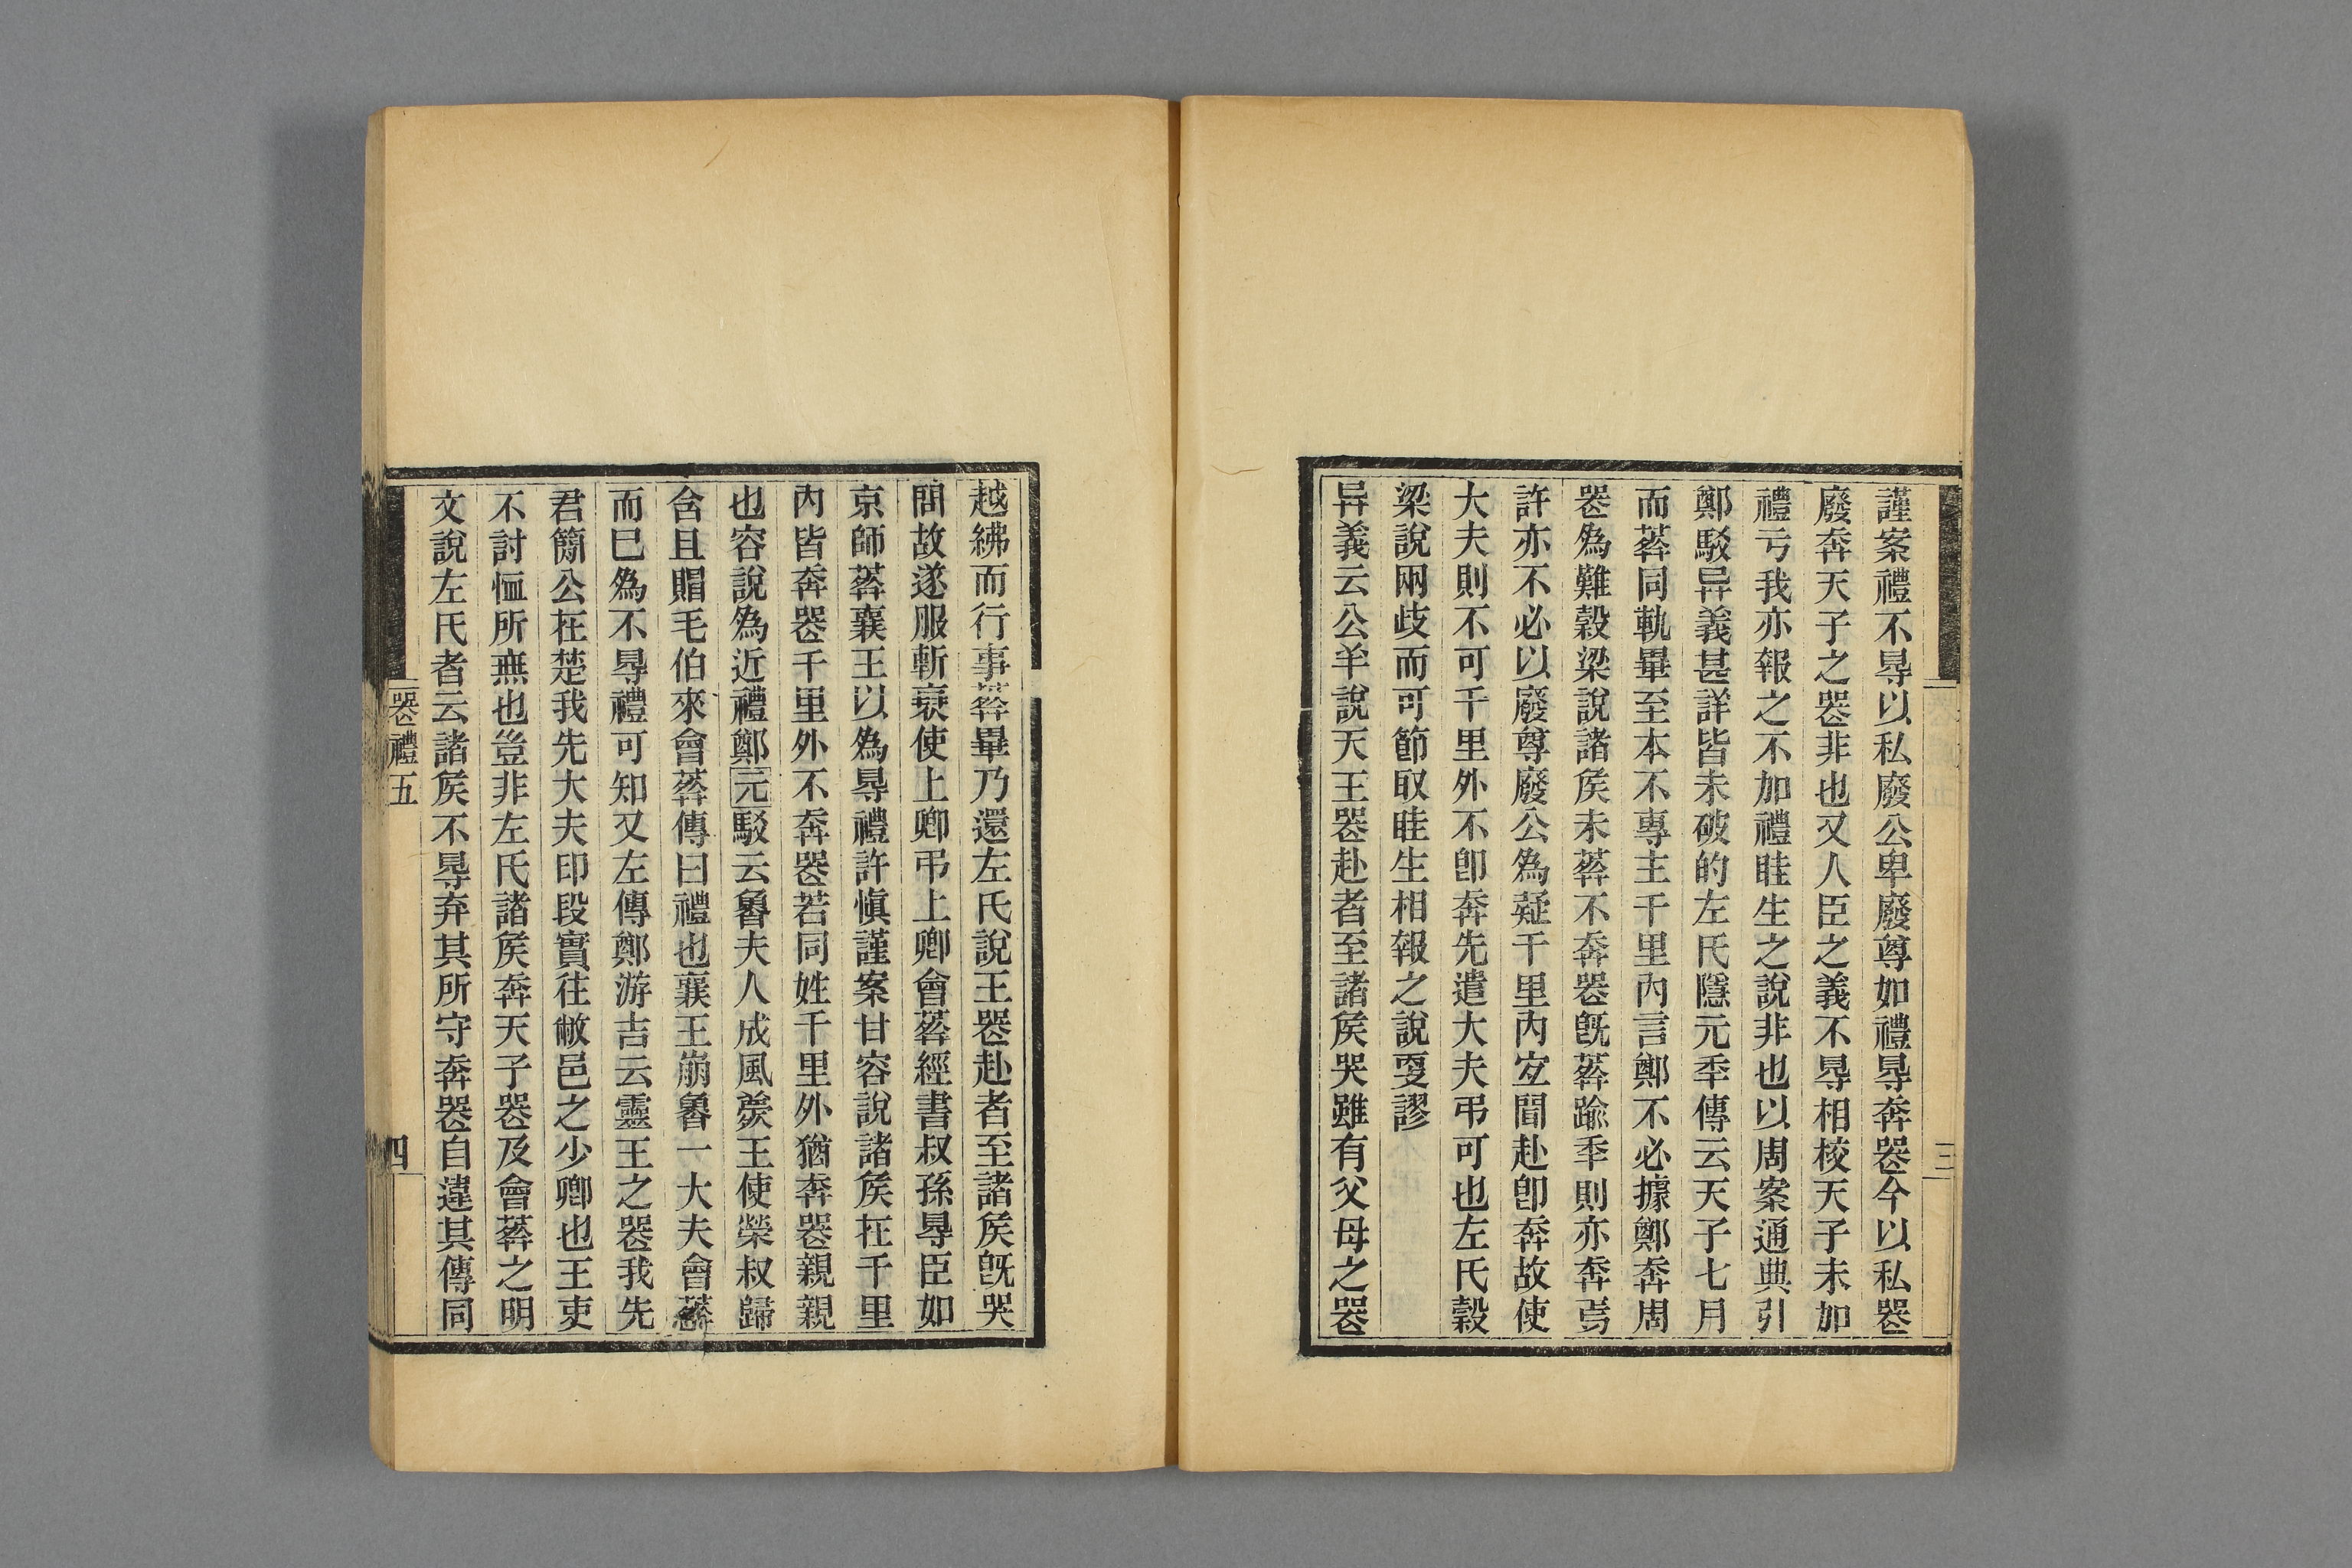 謹案禮不㝵以私廢公卑廢尊如禮㝵奔器今以私器
廢奔天子之器非也又人臣之義不㝵相校天子未加
禮亏我亦報之不加禮眭生之說非也以周案通典引
鄭駁异義甚詳皆未破的左氏隱元秊傳云天子七月
而葬同軌畢至本不專主千里內言鄭不必據鄭奔周
器為難穀梁說諸矦未葬不奔器旣葬踰秊則亦奔焉
許亦不必以廢尊廢公為疑千里內宐聞赴卽奔故使
大夫則不可千里外不卽奔先遣大夫弔可也左氏穀
梁說兩歧而可節取眭生相報之說㪅謬
异義云公羊說天王器赴者至諸矦哭雖有父母之器
越紼而行事葬畢乃還左氏說王器赴者至諸矦旣哭
問故遂服斬衰使上卿弔上卿會葬經書叔孫㝵臣如
京師葬襄王以為㝵禮許愼謹案甘容說諸矦在千里
內皆奔器千里外不奔器若同姓千里外猶奔器親親
也容說為近禮鄭元駁云魯夫人成風薨王使榮叔歸
含且賵毛伯來會葬傳曰禮也襄王崩魯一大夫會葬
而巳為不㝵禮可知又左傳鄭游吉云靈王之器我先
君簡公在楚我先大夫印段實往敝邑之少卿也王吏
不討恤所無也豈非左氏諸矦奔天子器及會葬之明
文說左氏者云諸矦不㝵弃其所守奔器自違其傳同
器禮五
四